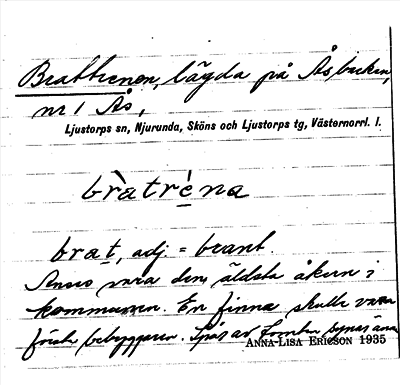 Brattrenen, lägda på Åsbacken,
nr 1 Ås,
Ljustorps sn, Njurunda, Sköns och Ljustorps tg, Västernorrl. l.
bràtrèna
brat, adj. = brant.
Anses vara den äldsta åkern i
kommunen. En finne skulle vara
förste bebyggaren. Spår av tomten synes ännu
ANNA-LISA ERICSON 1935